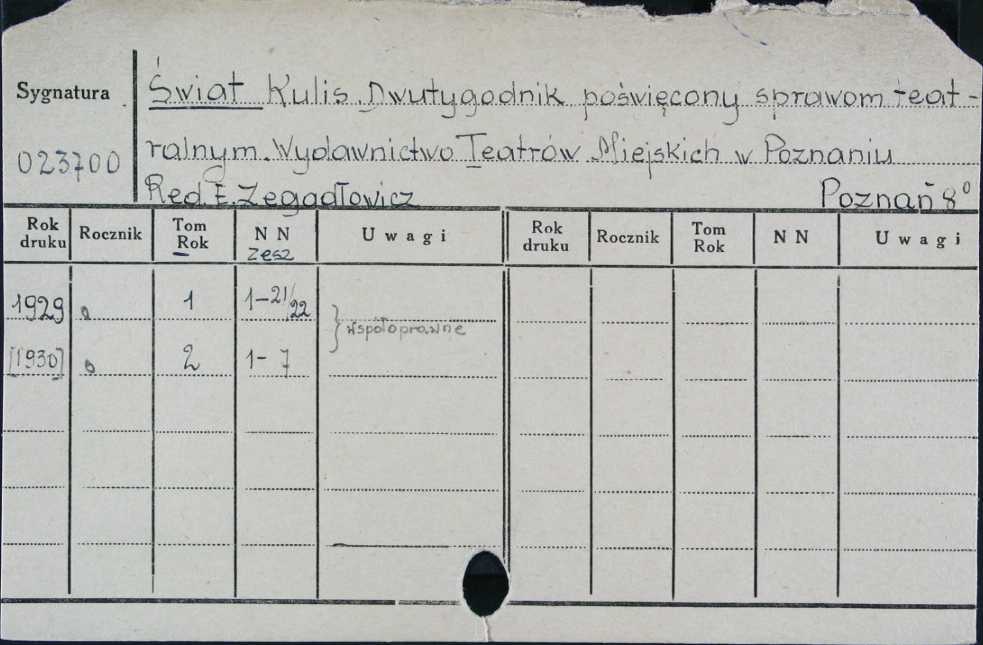 Sygnatura
023700
Świat Kulis. Dwutygodnik poświęcony sprawom teat-
ralnym. Wydawnictwo Teatrów Miejskich w Poznaniu
Red. E. Zegadłowicz Poznań 8°
Rok druku Rocznik Tom Rok NN Zesz Uwagi Rok druku Rocznik Tom Rok NN Uwagi
1929 1 1-21/22
} współoprawne
[1930] 2 1-7